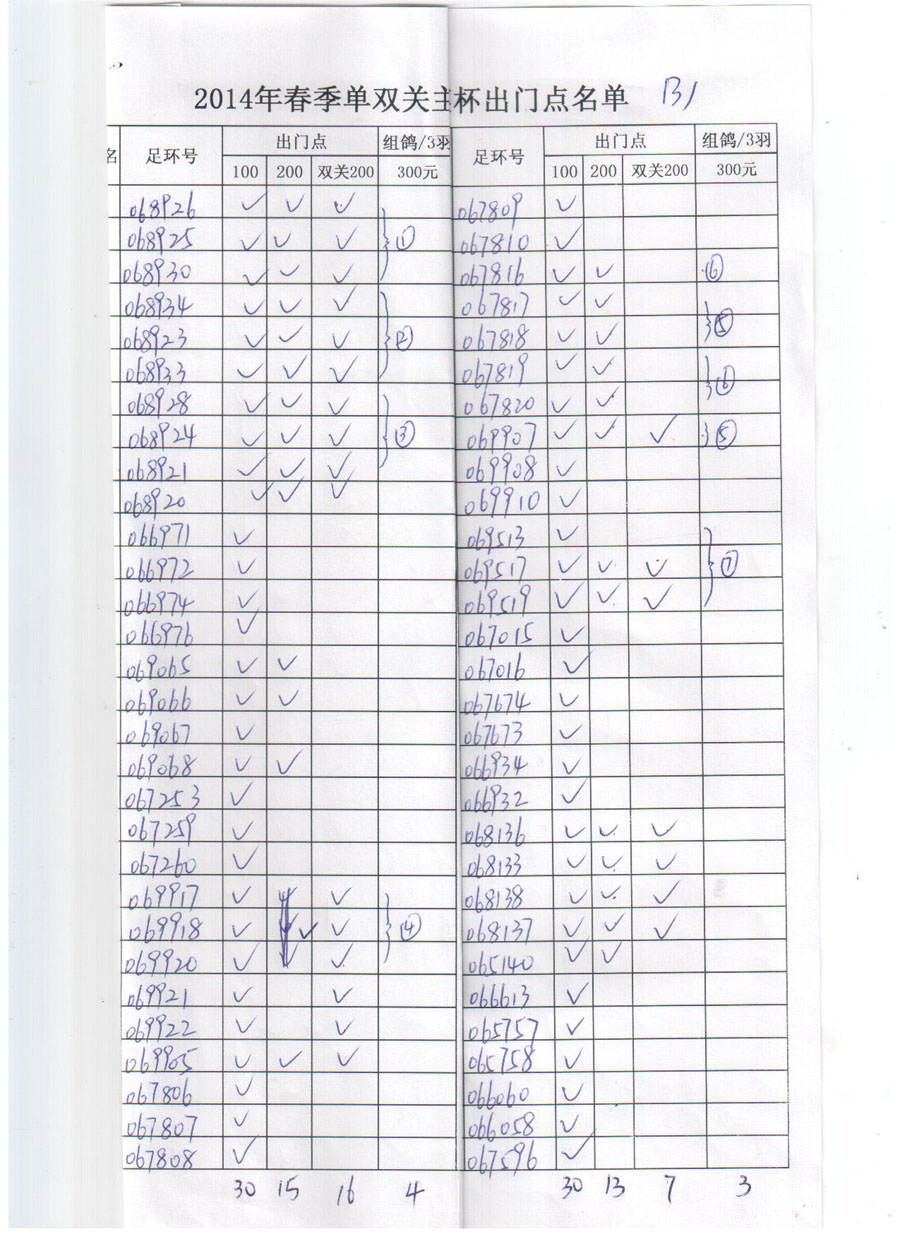 2014年春季单双关主杯出门点名单 B1
名 足环号 出门点 组鸽/3羽 足环号 出门点 组鸽/3羽
100 200 双关200 300元 100 200 双关200 300元
068926 ✓ ✓ ✓ 067809 ✓
068925 ✓ ✓ ✓ ① 067810 ✓
068930 ✓ ✓ ✓ 067816 ✓ ✓ ⑥
068934 ✓ ✓ ✓ 067817 ✓ ✓
068923 ✓ ✓ ✓ ② 067818 ✓ ✓ ⑤
068933 ✓ ✓ ✓ 067819 ✓ ✓
068928 ✓ ✓ ✓ 067820 ✓ ✓ ⑥
068924 ✓ ✓ ✓ ③ 069907 ✓ ✓ ✓ ⑤
068921 ✓ ✓ ✓ 069908 ✓
068920 ✓ ✓ ✓ 069910 ✓
066971 ✓ 069513 ✓
066972 ✓ 069517 ✓ ✓ ✓ ⑦
066974 ✓ 069519 ✓ ✓ ✓
066976 ✓ 067015 ✓
069065 ✓ ✓ 067016 ✓
069066 ✓ ✓ 067674 ✓
069067 ✓ 067673 ✓
069068 ✓ ✓ 066934 ✓
067253 ✓ 066932 ✓
067259 ✓ 068136 ✓ ✓ ✓
067260 ✓ 068133 ✓ ✓ ✓
069917 ✓ ✓ 068138 ✓ ✓ ✓
069918 ✓ ✓ ✓ ④ 068137 ✓ ✓ ✓
069920 ✓ ✓ 065140 ✓ ✓
069921 ✓ ✓ 066613 ✓
069922 ✓ ✓ 065757 ✓
069905 ✓ ✓ ✓ 065758 ✓
067806 ✓ 066060 ✓
067807 ✓ 066058 ✓
067808 ✓ 067596 ✓
30 15 16 4 30 13 7 3